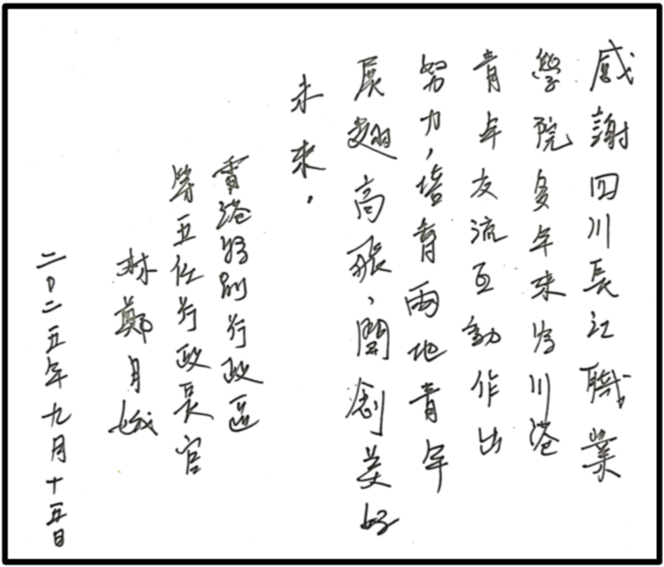 感謝四川長江職業
學院多年來為川港
青年交流互動作出
努力，培育兩地青年
展翅高飛，開創美好
未來。
香港特別行政區
第五任行政長官
林鄭月娥
二〇二五年九月十五日